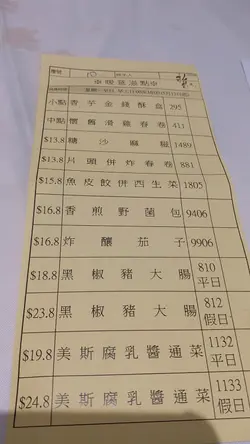 小點 香芋金錢酥盒 295
中點 懷舊滑雞春卷 411
$13.8 糖沙麻糍 1489
$13.8 片頭併炸春卷 881
$15.8 魚皮餃併西生菜 1805
$16.8 香煎野菌包 9406
$16.8 炸釀茄子 9906
$18.8 黑椒豬大腸 810 平日
$23.8 黑椒豬大腸 812 假日
$19.8 美斯腐乳醬通菜 1132 平日
$24.8 美斯腐乳醬通菜 1133 假日